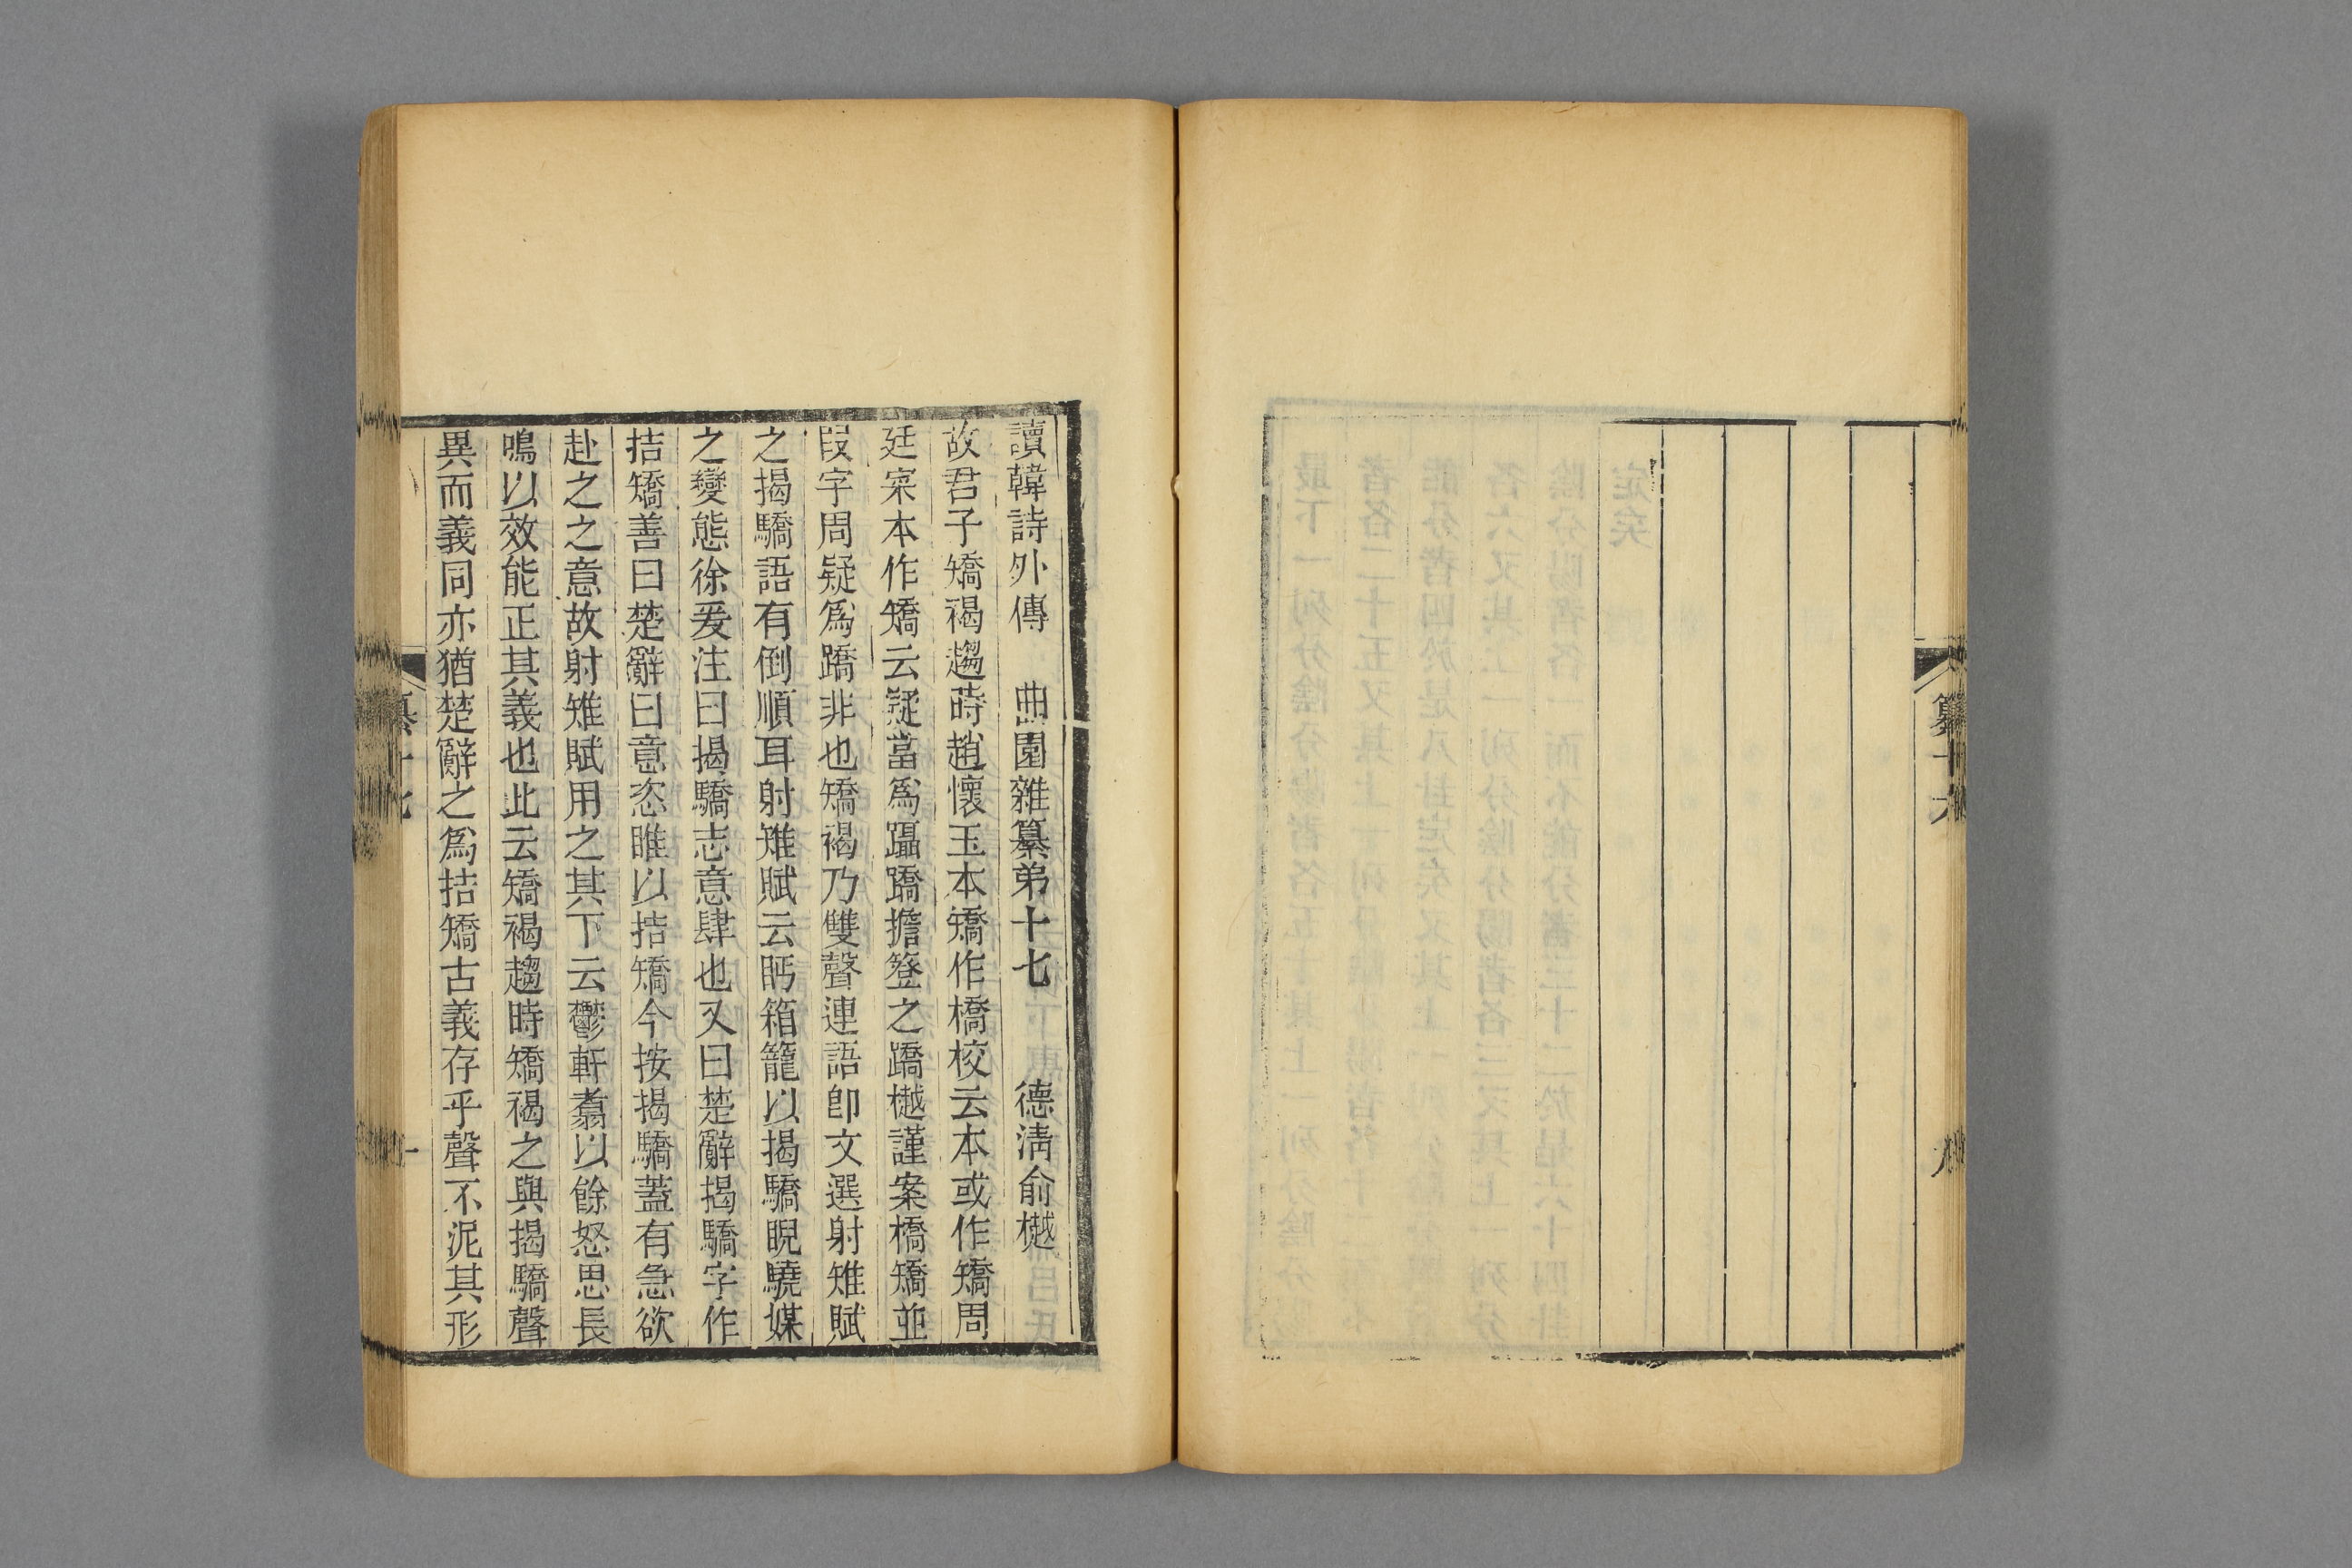 纂十六
讀韓詩外傳　曲園雜纂弟十七　德淸俞樾
故君子矯褐趨時趙懷玉本矯作橋校云本或作矯周
廷寀本作矯云疑當爲躡蹻擔簦之蹻樾謹案橋矯並
叚字周疑爲蹻非也矯褐乃雙聲連語卽文選射雉賦
之揭驕語有倒順耳射雉賦云眄箱籠以揭驕睨驍媒
之變態徐爰注曰揭驕志意肆也又曰楚辭揭驕字作
拮矯善曰楚辭曰意恣睢以拮矯今按揭驕蓋有急欲
赴之之意故射雉賦用之其下云鬱軒翥以餘怒思長
鳴以效能正其義也此云矯褐趨時矯褐之與揭驕聲
異而義同亦猶楚辭之爲拮矯古義存乎聲不泥其形